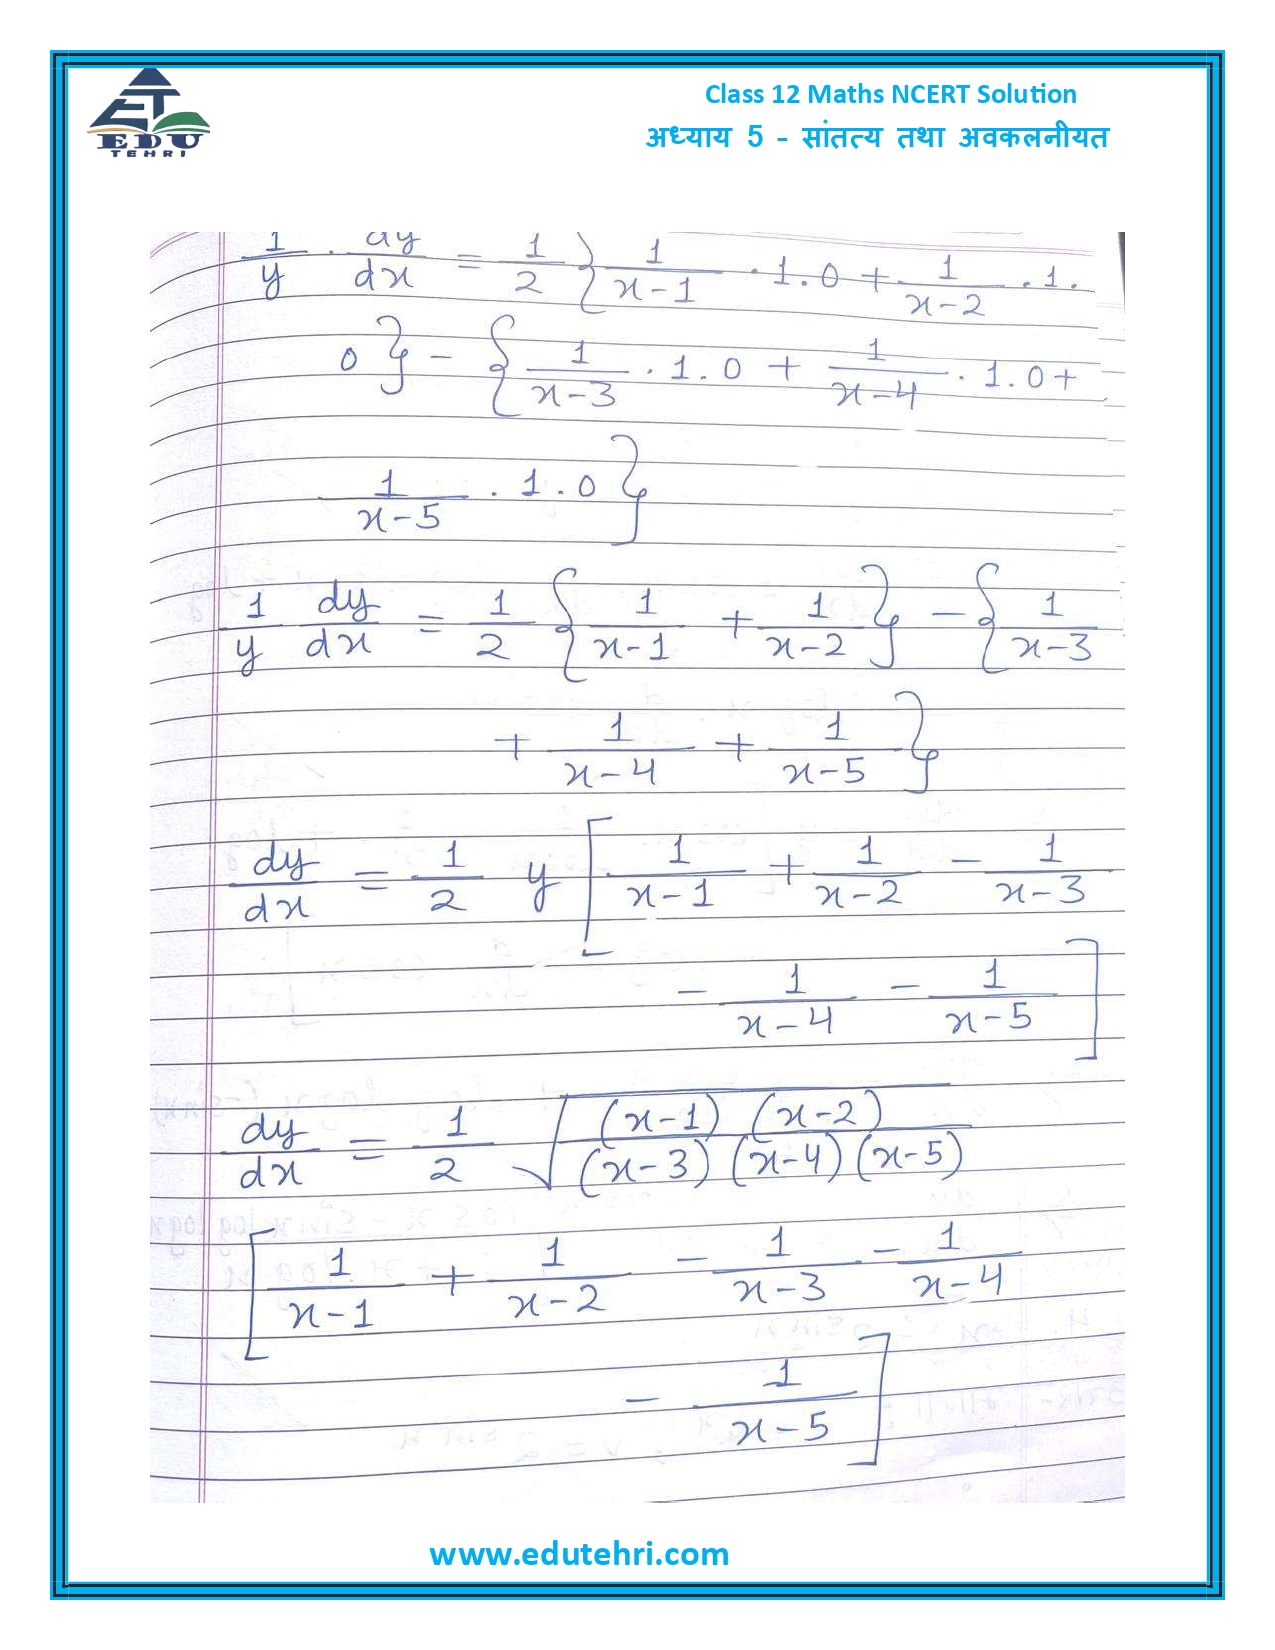 EDU
TEHRI
Class 12 Maths NCERT Solution
अध्याय 5 - सांतत्य तथा अवकलनीयत
1/y . dy/dx = 1/2 { 1/(x-1) . 1.0 + 1/(x-2) . 1.
0 } - { 1/(x-3) . 1.0 + 1/(x-4) . 1.0 +
1/(x-5) . 1.0 }
1/y dy/dx = 1/2 { 1/(x-1) + 1/(x-2) } - { 1/(x-3)
+ 1/(x-4) + 1/(x-5) }
dy/dx = 1/2 y [ 1/(x-1) + 1/(x-2) - 1/(x-3)
- 1/(x-4) - 1/(x-5) ]
dy/dx = 1/2 √((x-1) (x-2) / (x-3) (x-4) (x-5))
[ 1/(x-1) + 1/(x-2) - 1/(x-3) - 1/(x-4)
- 1/(x-5) ]
www.edutehri.com